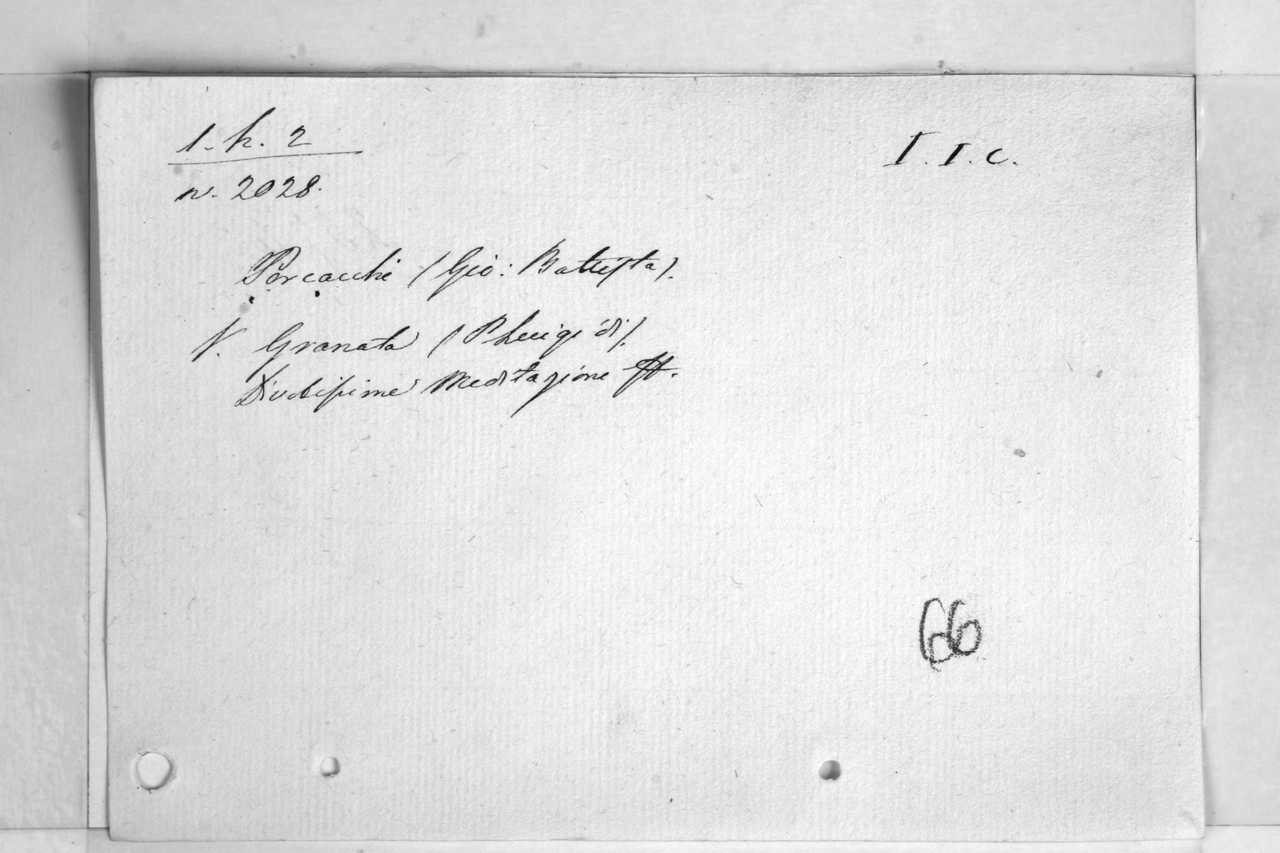 1. h. 2
I. I. C.
n. 2028.
Porcacchi (Gio: Battista).
V. Granata (P Luigi di).
Divotissime Meditazione
66